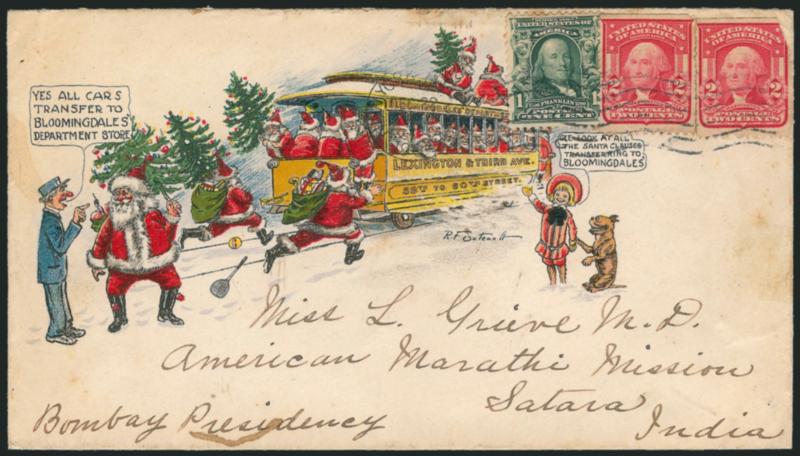 YES ALL CARS
TRANSFER TO
BLOOMINGDALES'
DEPARTMENT STORE
LEXINGTON & THIRD AVE.
59TH TO 60TH STREET.
LOOK AT ALL
THE SANTA CLAUSES
TRANSFERRING TO
BLOOMINGDALES
UNITED STATES OF
AMERICA
1
FRANKLIN
ONE CENT
UNITED STATES
OF AMERICA
2 2
POSTAGE
TWO CENTS
UNITED STATES
OF AMERICA
2 2
POSTAGE
TWO CENTS
R.F.
Miss L. Grieve M.D.
American Marathi Mission
Satara
Bombay Presidency
India